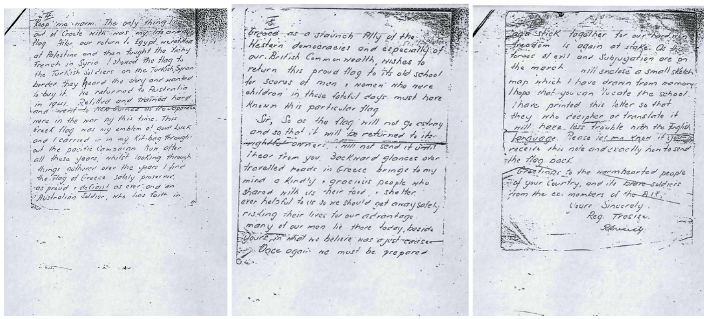 II
Keep me warm. The only thing I
out of Crete with was my life and
flag. After our return to Egypt we rallied
at Palestine and then fought the Vichy
French in Syria. I showed the flag to
the Turkish Soldiers on the Turkish Syrian
border they heard the story and wanted
to buy it. We returned to Australia
in 1942. Refitted and trained hard
and went to
were in the war by this time. This
Greek flag was my emblem of Good Luck
and I carried in my Kit-bag through-
out the pacific Campaign. Now after
all these years, whilst looking through
things gathered over the years I find
the flag of Greece safely preserved,
as proud & defiant as ever, and an
Australian Soldier, who has faith in
III
Greece as a staunch Ally of the
Western democracies and especially of
our British Commonwealth, wishes to
return this proud flag to its old school
for scores of men & women who were
children in those fateful days must have
known this particular flag.
Sir, So as the flag will not go astray
and so that it will be returned to its
rightful owners, I will not send it until
I hear from you. Backward glances over
travelled roads in Greece brings to my
mind a kindly & gracious people who
shared with us their food & shelter
ever helpful to us so we should get away safely,
risking their lives for our advantage.
many of our men lie there today, beside
yours, in what we believe was a just cause.
Once again we must be prepared
stick together for our
freedom is again at stake. As the
forces of evil and Subjugation are on
the march will enclose a small sketch
map which I have drawn from memory
I hope that you can locate the school.
I have printed this letter so that
they who decipher or translate it
will have less trouble with the English
Language. Please let me know if you
receive this note and exactly how to send
the flag back.
Greetings to the warmhearted people
of your Country, and its brave soldiers
from the members of the A.I.F.
Yours Sincerely
Reg.